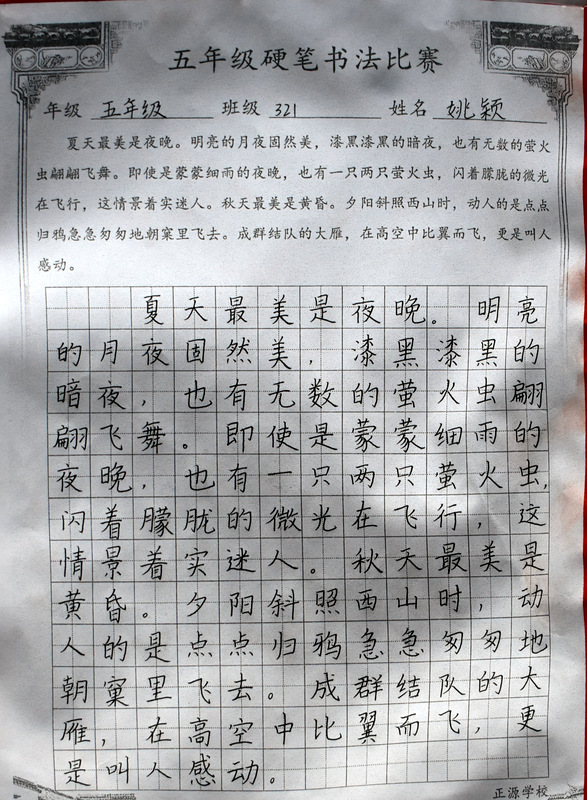 五年级硬笔书法比赛
年级 五年级 班级 321 姓名 姚颖
夏天最美是夜晚。明亮的月夜固然美，漆黑漆黑的暗夜，也有无数的萤火
虫翩翩飞舞。即使是蒙蒙细雨的夜晚，也有一只两只萤火虫，闪着朦胧的微光
在飞行，这情景着实迷人。秋天最美是黄昏。夕阳斜照西山时，动人的是点点
归鸦急急匆匆地朝窠里飞去。成群结队的大雁，在高空中比翼而飞，更是叫人
感动。
夏天最美是夜晚。明亮
的月夜固然美，漆黑漆黑的
暗夜，也有无数的萤火虫翩
翩飞舞。即使是蒙蒙细雨的
夜晚，也有一只两只萤火虫，
闪着朦胧的微光在飞行，这
情景着实迷人。秋天最美是
黄昏。夕阳斜照西山时，动
人的是点点归鸦急急匆匆地
朝窠里飞去。成群结队的大
雁，在高空中比翼而飞，更
是叫人感动。
正源学校